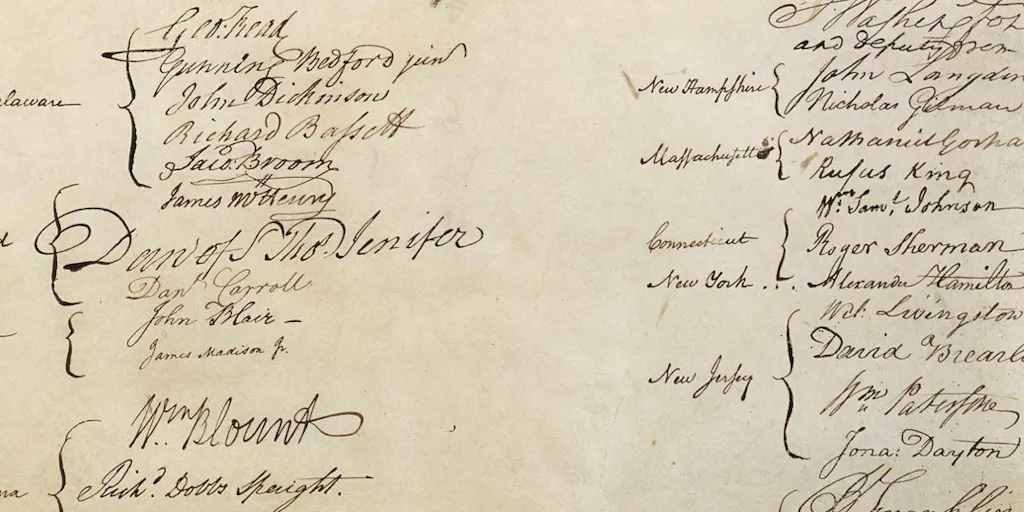 Geo: Read
Gunning Bedford jun
John Dickinson
elaware
Richard Bassett
Jaco: Broom
James McHenry
d
Dan of St Thos. Jenifer
Danl Carroll
John Blair –
James Madison Jr.
Wm Blount
Richd. Dobbs Spaight.
na
Washington
and deputy from
John Langdon
New Hampshire
Nicholas Gilman
Massachusetts
Nathaniel Gorha
Rufus King
Wm. Saml. Johnson
Connecticut
Roger Sherman
New York . . .
Alexander Hamilton
Wil: Livingston
David Brearl
New Jersey
Wm Paterson
Jona: Dayton
B Franklin